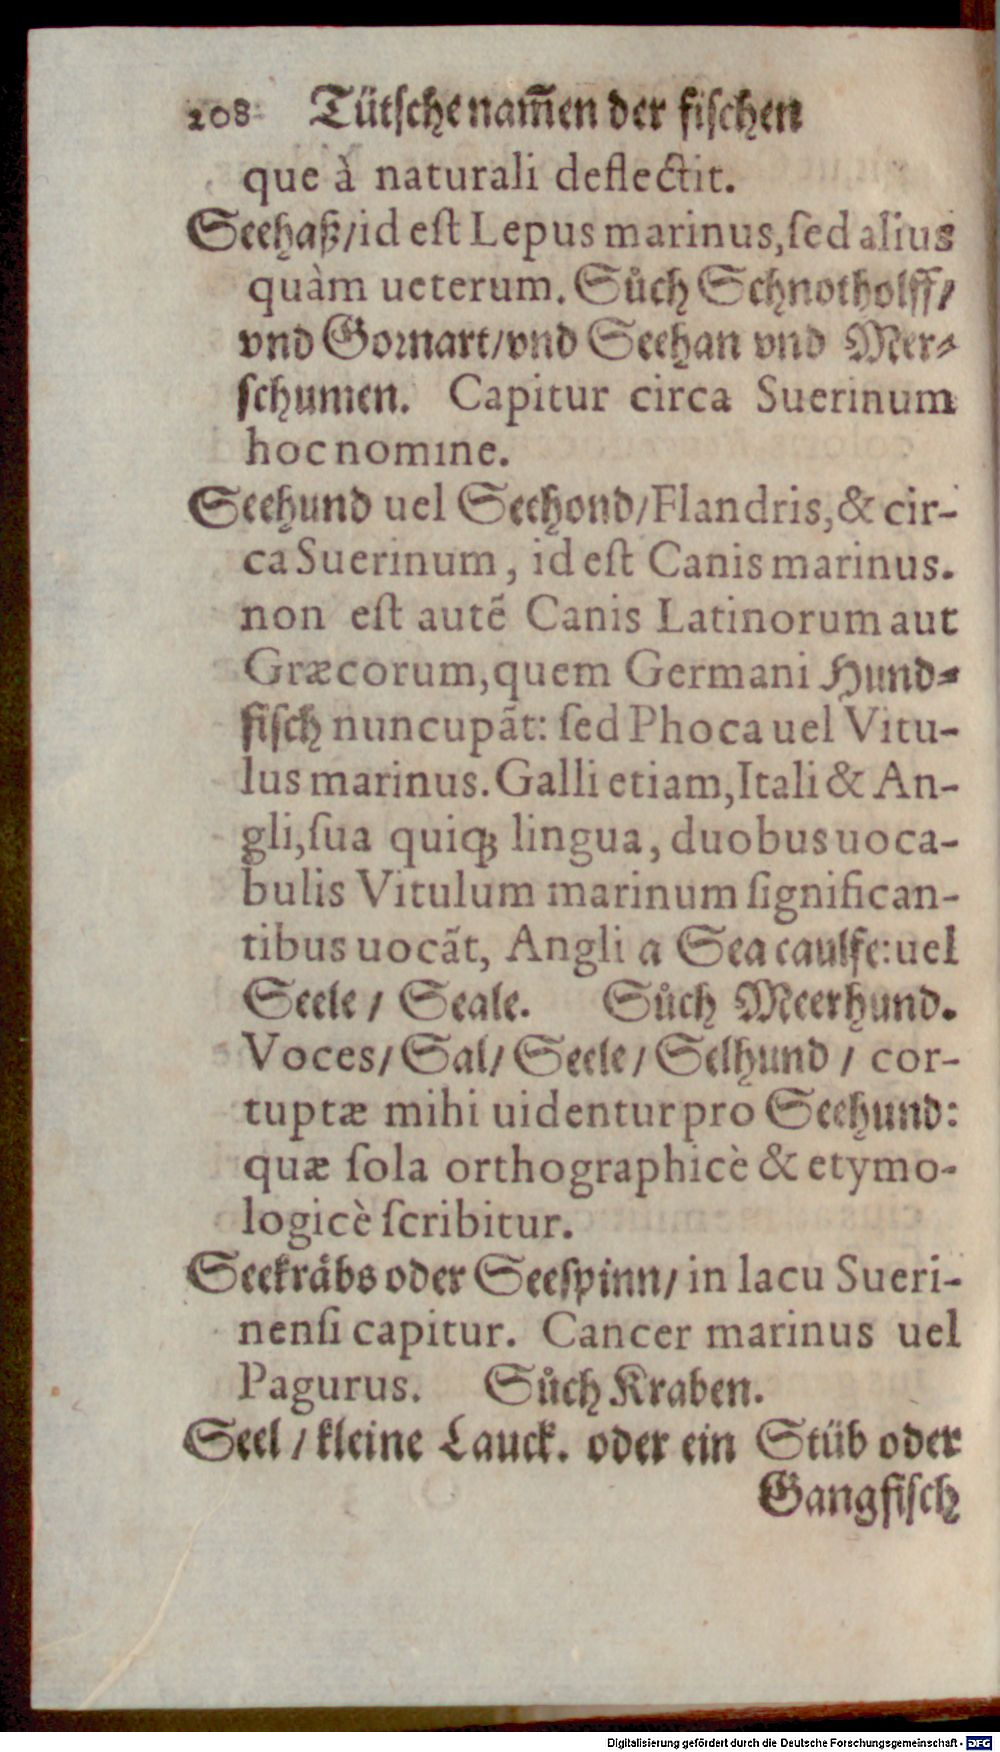 208 Tütsche nam̃en der fischen
que à naturali deflectit.
Seehaß/id eſt Lepus marinus,ſed alius
quàm ueterum. Sůch Schnotholff/
vnd Gornart/vnd Seehan vnd Mer⸗
ſchumen. Capitur circa Suerinum
hoc nomine.
Seehund uel Seehond/Flandris,& cir-
ca Suerinum, id eſt Canis marinus.
non eſt autẽ Canis Latinorum aut
Græcorum,quem Germani Hund⸗
fiſch nuncupãt: ſed Phoca uel Vitu-
lus marinus. Galli etiam,Itali & An-
gli,ſua quiqꝫ lingua, duobus uoca-
bulis Vitulum marinum ſignifican-
tibus uocãt, Angli a Sea caulfe: uel
Seele / Seale. Sůch Meerhund.
Voces/ Sal/ Seele/ Selhund / cor-
tuptæ mihi uidentur pro Seehund:
quæ ſola orthographicè & etymo-
logicè ſcribitur.
Seekräbs oder Seeſpinn/ in lacu Sueri-
nenſi capitur. Cancer marinus uel
Pagurus. Sůch Kraben.
Seel / kleine Lauck. oder ein Stüb oder
Gangfiſch
Digitalisierung gefördert durch die Deutsche Forschungsgemeinschaft - DFG